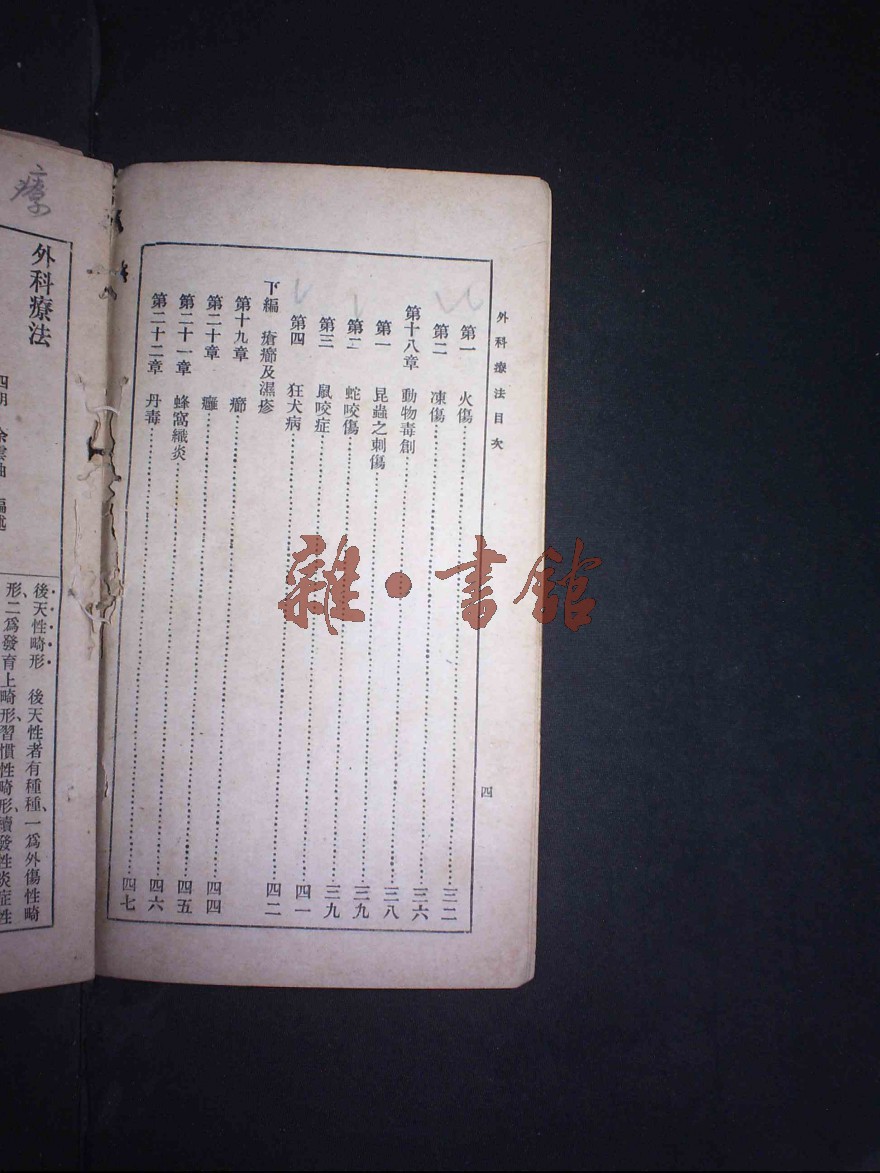 外科療法目次
四
第一　火傷……三二
第二　凍傷……三六
第十八章　動物毒創……三八
第一　昆蟲之刺傷……三九
第二　蛇咬傷……三九
第三　鼠咬症……四一
第四　狂犬病……四二
下編　瘡癤及濕疹
第十九章　癤……四四
第二十章　癰……四五
第二十一章　蜂窩織炎……四六
第二十二章　丹毒……四七
療
外科療法
四明　余雲岫　編述
後天性畸形　後天性者有種種、一爲外傷性畸
形、二爲發育上畸形、習慣性畸形、續發性炎症性
雜·書館